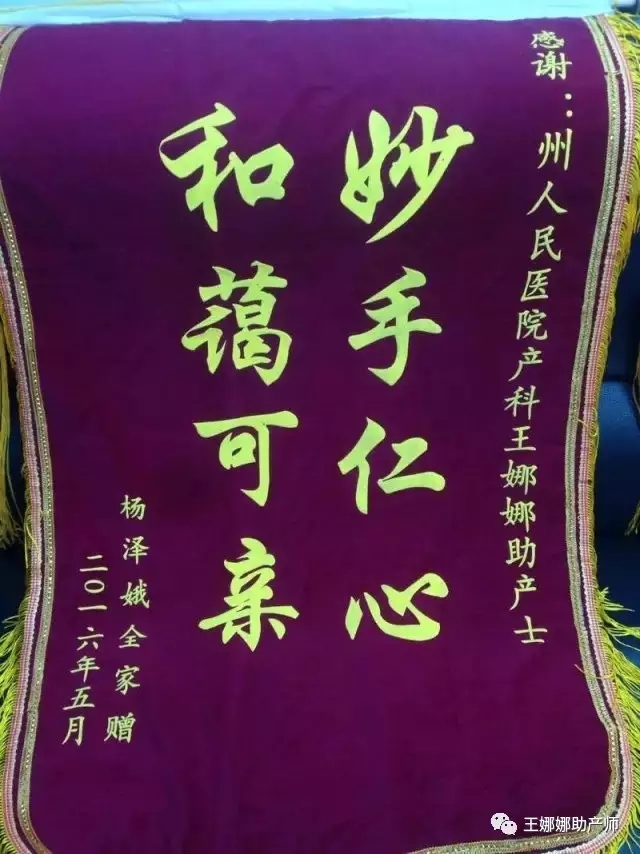 感谢：州人民医院产科王娜娜助产士
妙手仁心
和蔼可亲
杨泽娥全家赠
二〇一六年五月
王娜娜助产师